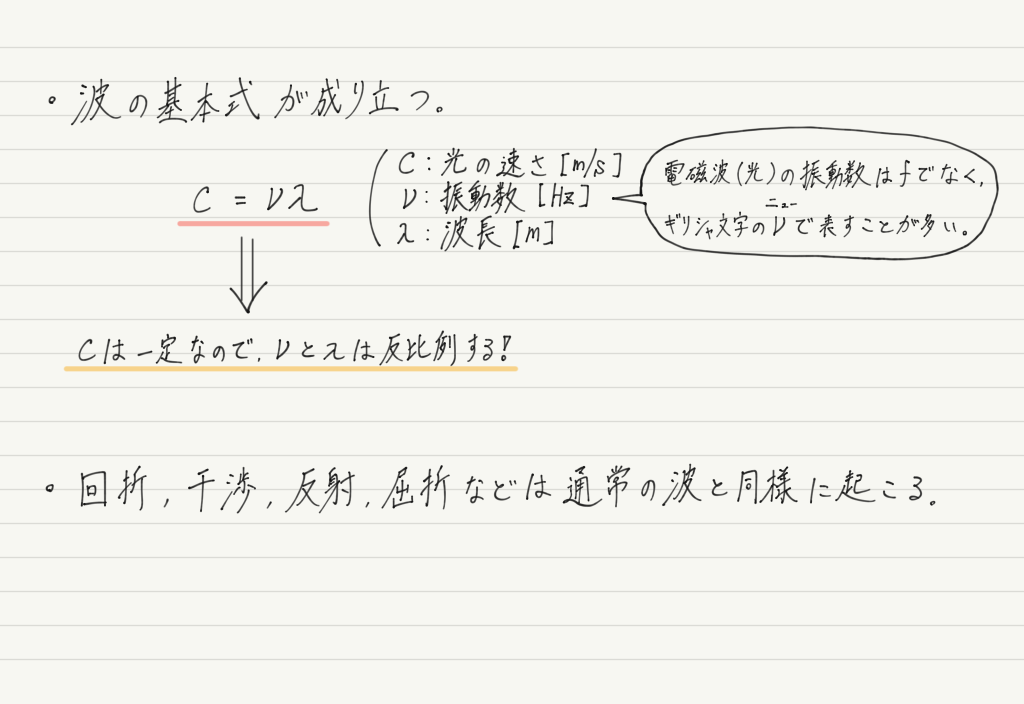 。波の基本式が成り立つ。
C = νλ
C：光の速さ [m/s]
ν：振動数 [Hz]
λ：波長 [m]
電磁波(光)の振動数はfでなく,
ニュー
ギリシャ文字のνで表すことが多い。
Cは一定なので, νとλは反比例する!
。回折, 干渉, 反射, 屈折などは通常の波と同様に起こる。